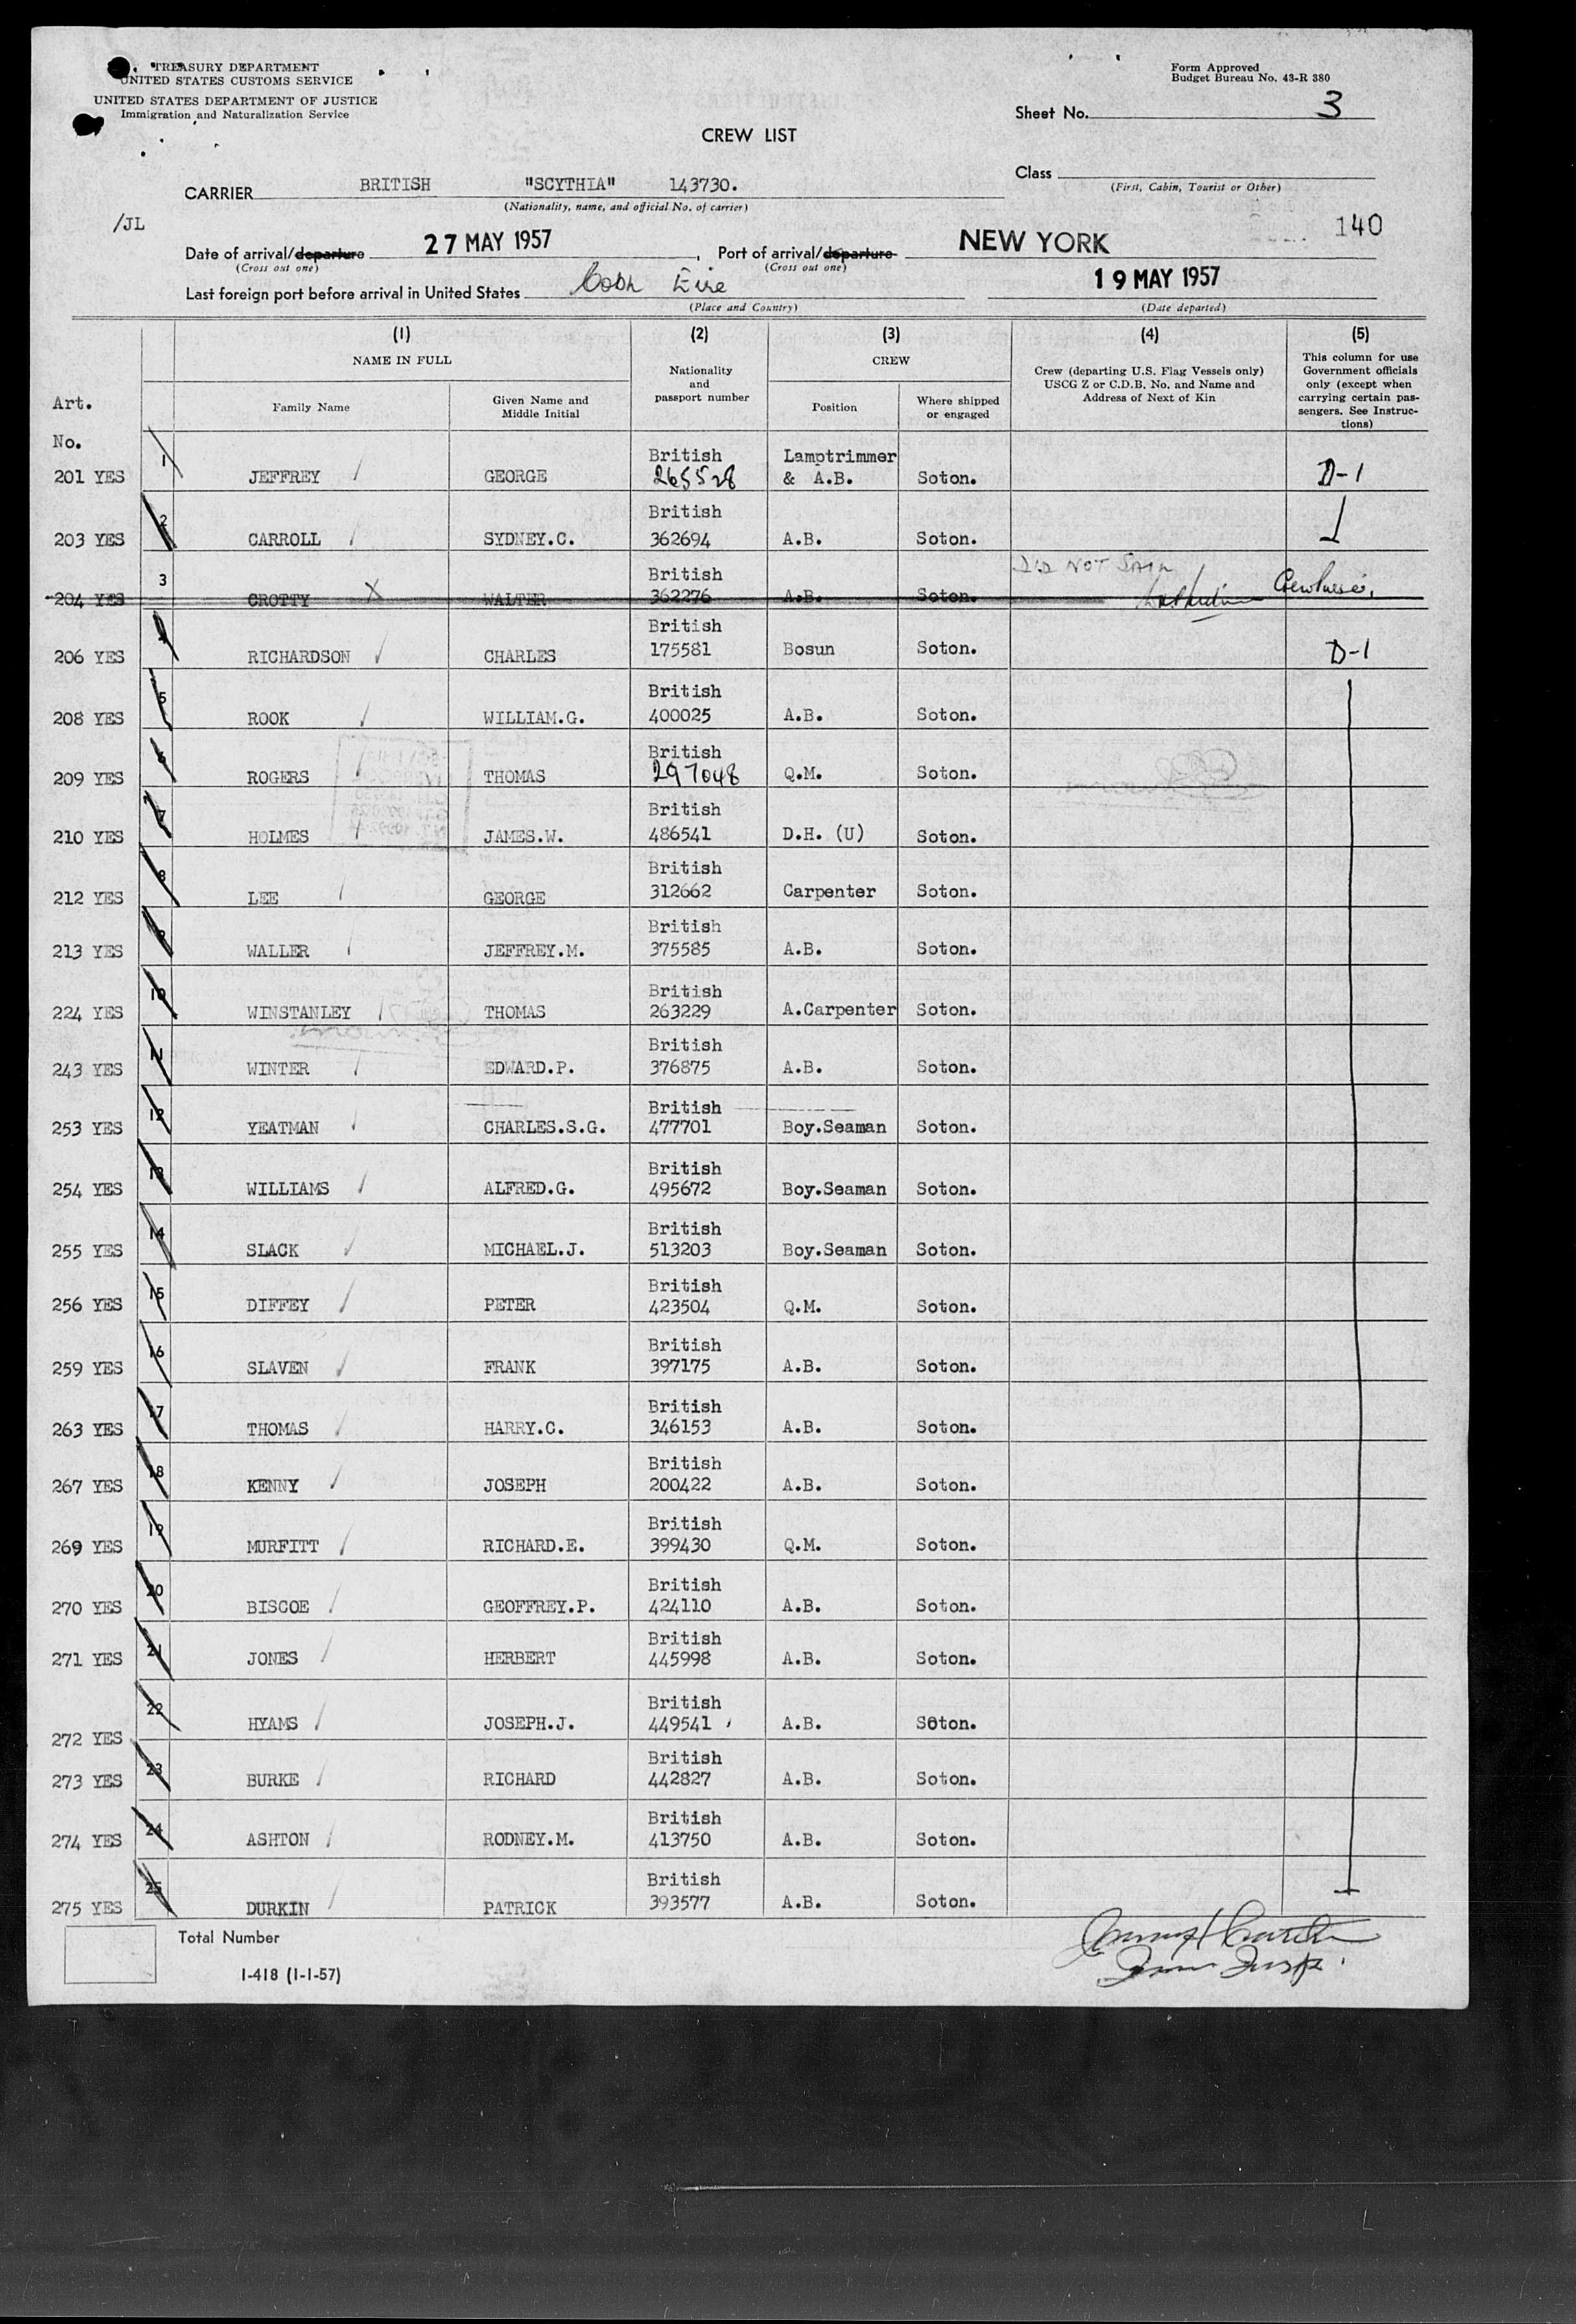 TREASURY DEPARTMENT
UNITED STATES CUSTOMS SERVICE
UNITED STATES DEPARTMENT OF JUSTICE
Immigration and Naturalization Service
Form Approved
Budget Bureau No. 43-R 380
Sheet No. 3
CREW LIST
Class
(First, Cabin, Tourist or Other)
CARRIER BRITISH "SCYTHIA" 143730.
(Nationality, name, and official No. of carrier)
/JL
140
Date of arrival/departure 27 MAY 1957, Port of arrival/departure NEW YORK
(Cross out one) (Cross out one)
Last foreign port before arrival in United States Cobh Eire 19 MAY 1957
(Place and Country) (Date departed)
(1) (2) (3) (4) (5)
NAME IN FULL
Nationality and passport number
CREW
Crew (departing U.S. Flag Vessels only) USCG Z or C.D.B. No. and Name and Address of Next of Kin
This column for use Government officials only (except when carrying certain passengers. See Instructions)
Art. No.
Family Name Given Name and Middle Initial Position Where shipped or engaged
201 YES 1 JEFFREY GEORGE British 265528 Lamptrimmer & A.B. Soton. D-1
203 YES 2 CARROLL SYDNEY.C. British 362694 A.B. Soton.
204 YES 3 CROTTY X WALTER British 362276 A.B. Soton. DID NOT SAIL
206 YES 4 RICHARDSON CHARLES British 175581 Bosun Soton. D-1
208 YES 5 ROOK WILLIAM.G. British 400025 A.B. Soton.
209 YES 6 ROGERS THOMAS British 297048 Q.M. Soton.
210 YES 7 HOLMES JAMES.W. British 486541 D.H. (U) Soton.
212 YES 8 LEE GEORGE British 312662 Carpenter Soton.
213 YES 9 WALLER JEFFREY.M. British 375585 A.B. Soton.
224 YES 10 WINSTANLEY THOMAS British 263229 A.Carpenter Soton.
243 YES 11 WINTER EDWARD.P. British 376875 A.B. Soton.
253 YES 12 YEATMAN CHARLES.S.G. British 477701 Boy.Seaman Soton.
254 YES 13 WILLIAMS ALFRED.G. British 495672 Boy.Seaman Soton.
255 YES 14 SLACK MICHAEL.J. British 513203 Boy.Seaman Soton.
256 YES 15 DIFFEY PETER British 423504 Q.M. Soton.
259 YES 16 SLAVEN FRANK British 397175 A.B. Soton.
263 YES 17 THOMAS HARRY.C. British 346153 A.B. Soton.
267 YES 18 KENNY JOSEPH British 200422 A.B. Soton.
269 YES 19 MURFITT RICHARD.E. British 399430 Q.M. Soton.
270 YES 20 BISCOE GEOFFREY.P. British 424110 A.B. Soton.
271 YES 21 JONES HERBERT British 445998 A.B. Soton.
272 YES 22 HYAMS JOSEPH.J. British 449541 A.B. Soton.
273 YES 23 BURKE RICHARD British 442827 A.B. Soton.
274 YES 24 ASHTON RODNEY.M. British 413750 A.B. Soton.
275 YES 25 DURKIN PATRICK British 393577 A.B. Soton.
Total Number
I-418 (1-1-57)